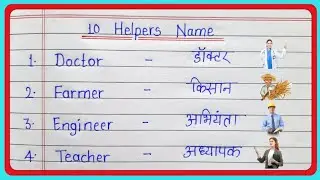 10 Helpers Name
1. Doctor - डॉक्टर
2. Farmer - किसान
3. Engineer - अभियंता
4. Teacher - अध्यापक